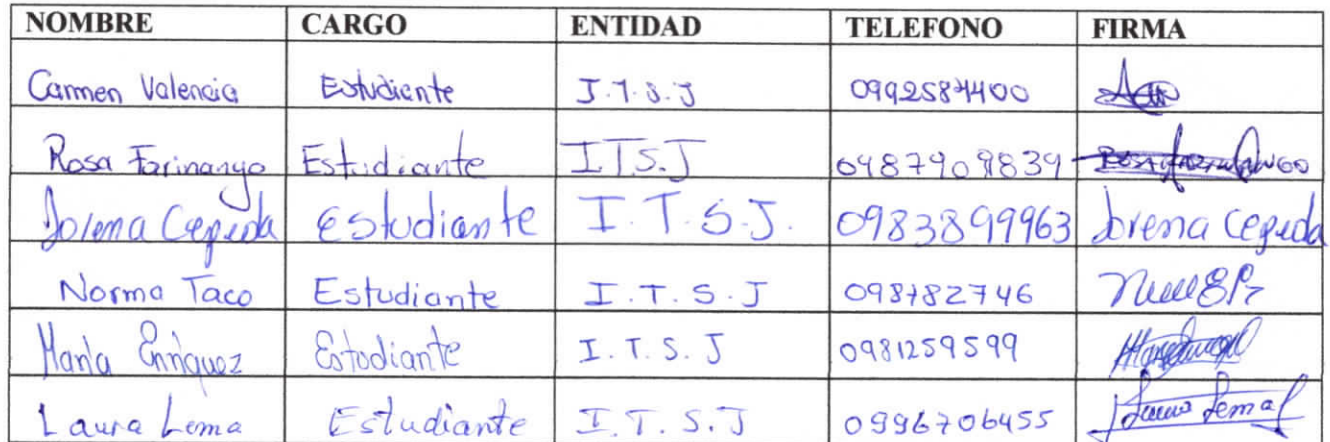 NOMBRE CARGO ENTIDAD TELEFONO FIRMA
Carmen Valencia Estudiante I.T.S.J 0992587400
Rosa Farinango Estudiante I.T.S.J 0987909839
Lorena Cepeda Estudiante I.T.S.J. 0983899963 Lorena Cepeda
Norma Taco Estudiante I.T.S.J 098782746
María Enríquez Estudiante I.T.S.J 0981259599
Laura Lema Estudiante I.T.S.J 0996706455